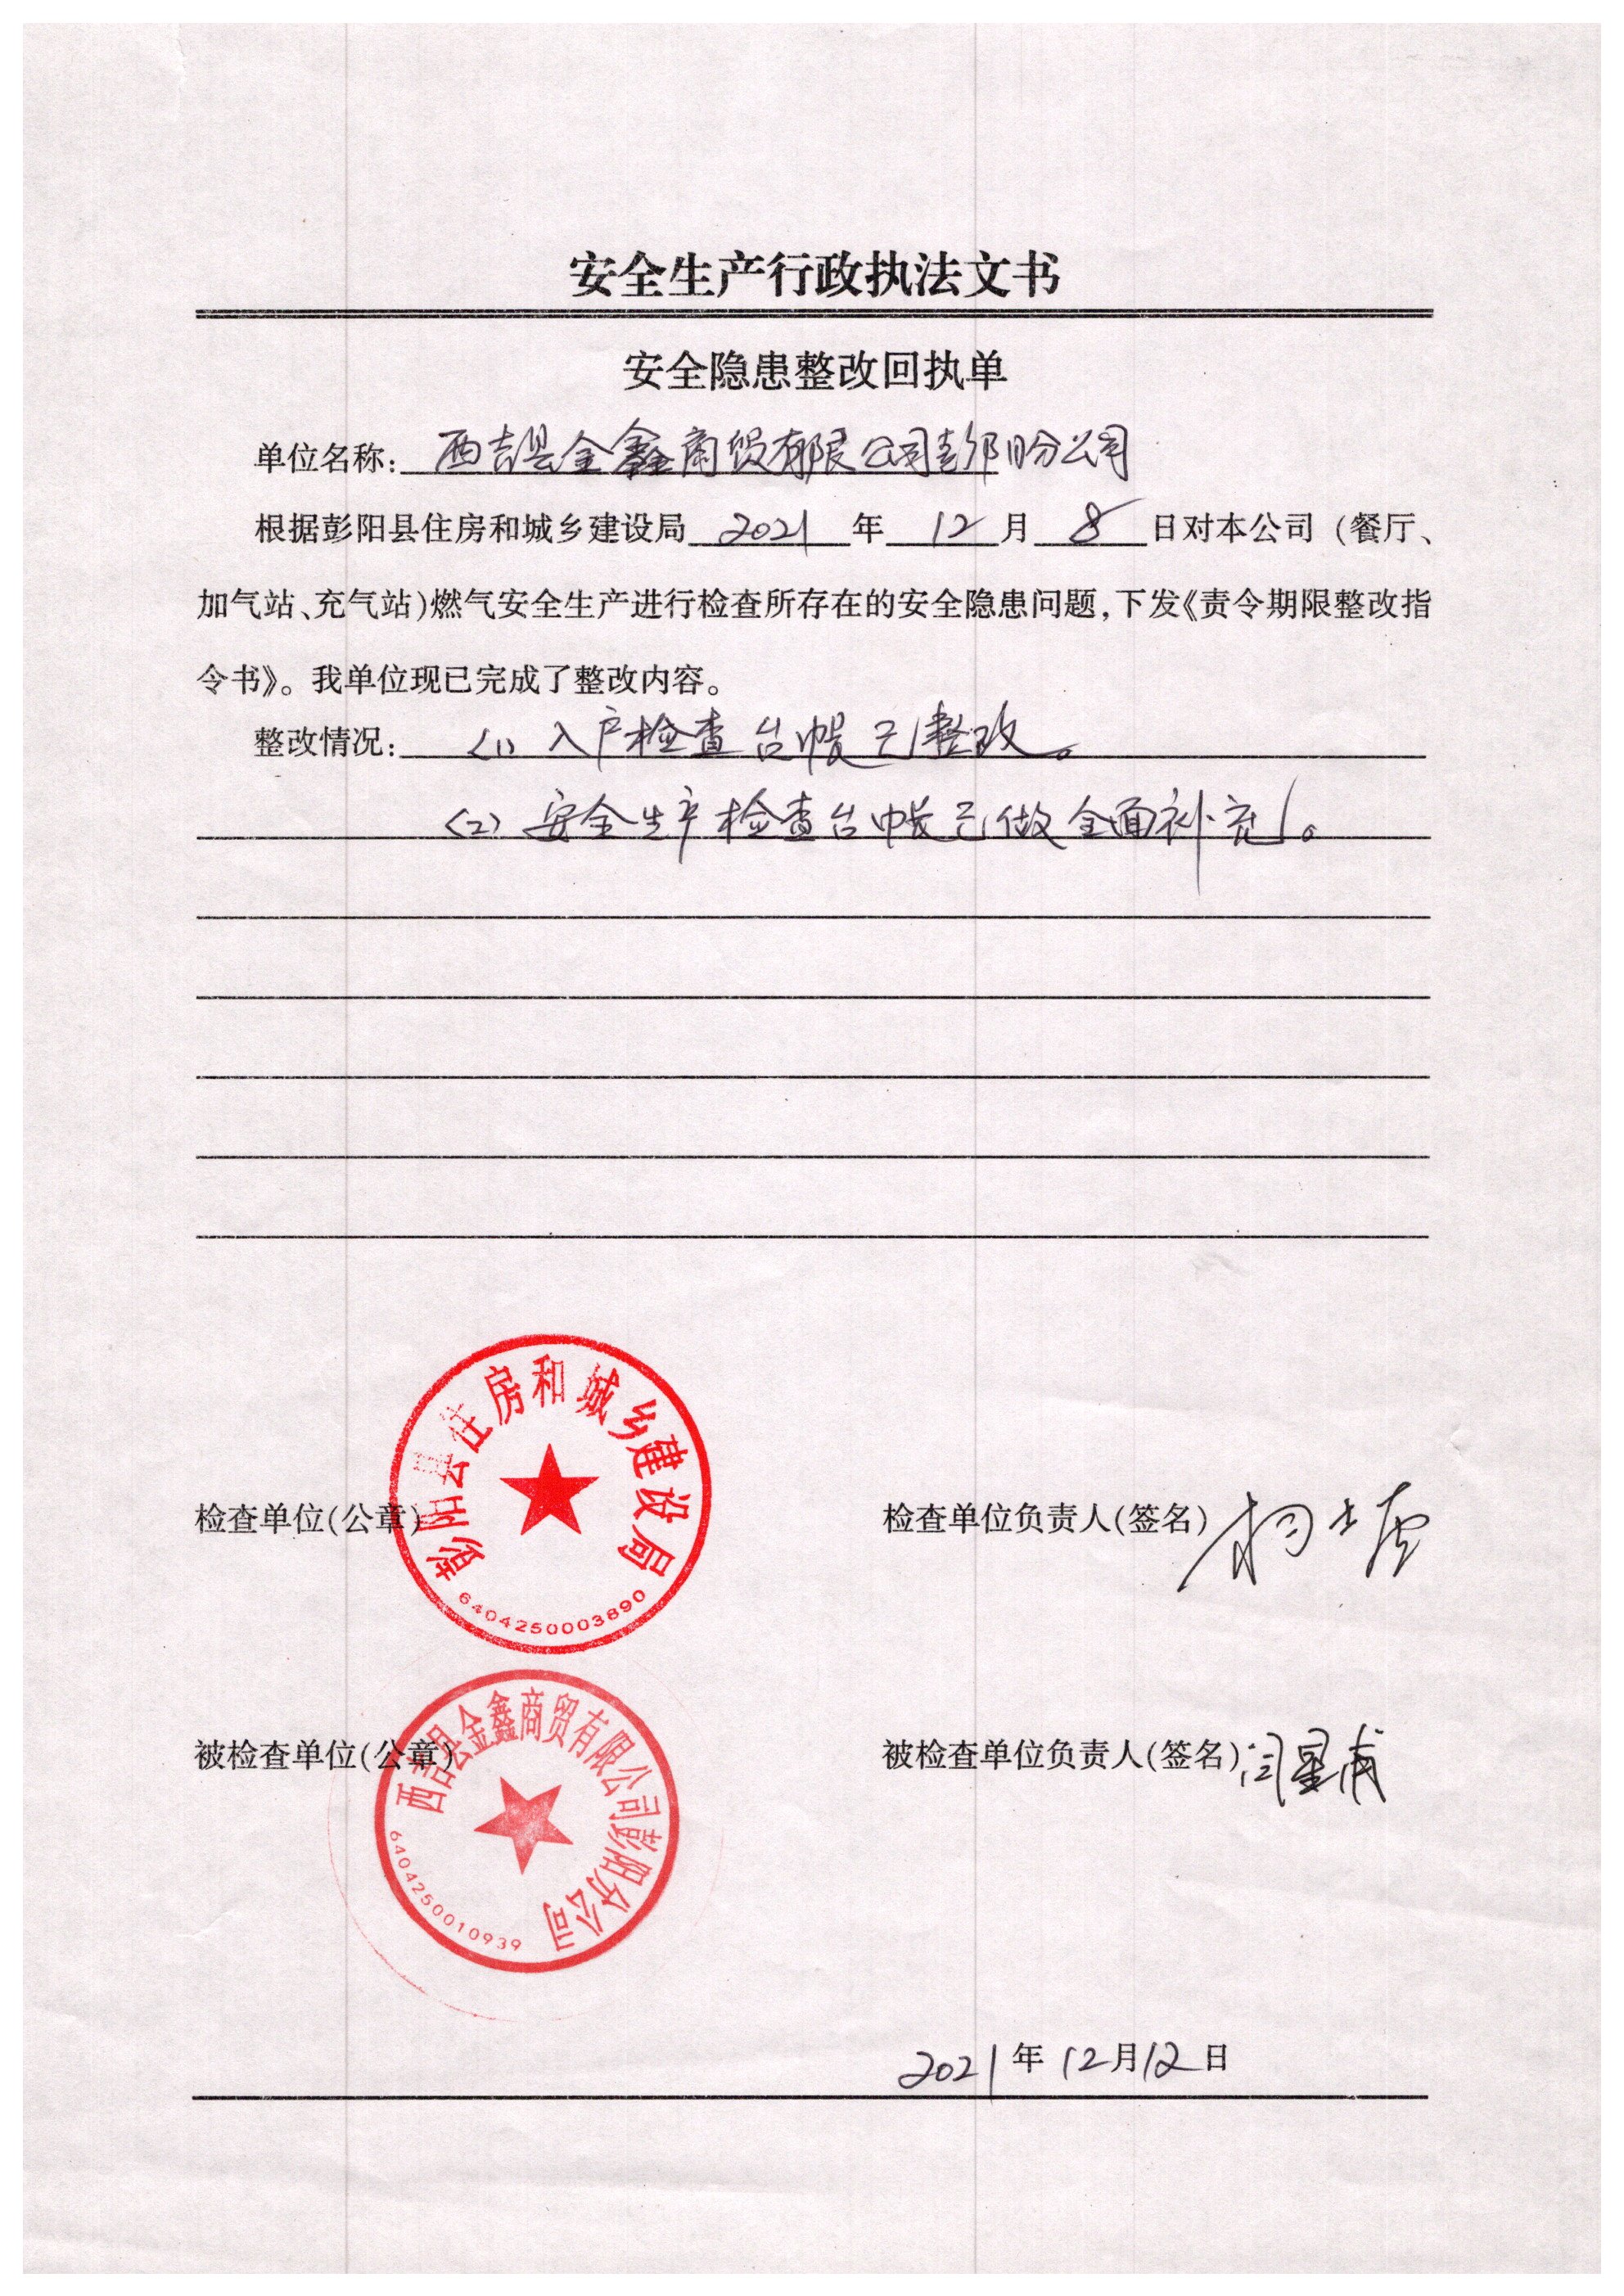 安全生产行政执法文书
安全隐患整改回执单
单位名称：西吉县金鑫商贸有限公司彭阳分公司
根据彭阳县住房和城乡建设局 2021 年 12 月 8 日对本公司（餐厅、
加气站、充气站）燃气安全生产进行检查所存在的安全隐患问题，下发《责令期限整改指
令书》。我单位现已完成了整改内容。
整改情况：(1) 入户检查台帐已整改。
(2) 安全生产检查台帐已做全面补充。
彭阳县住房和城乡建设局
6404250003890
检查单位（公章）
检查单位负责人（签名）
西吉县金鑫商贸有限公司彭阳分公司
6404250010939
被检查单位（公章）
被检查单位负责人（签名）
2021 年 12 月 12 日